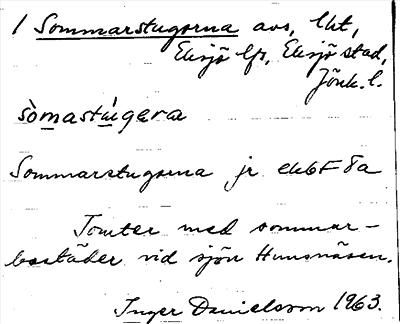 1 Sommarstugorna avs, lht,
Eksjö lfs, Eksjö stad,
Jönk. l.
sòmastúgara
Sommarstugorna jr ek6F8a
Tomter med sommar-
bostäder vid sjön Hunsnäsen.
Inger Danielsson 1963.